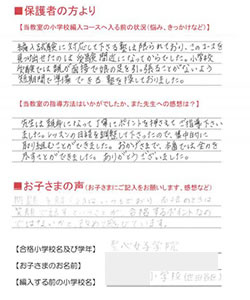 ■保護者の方より
【当教室の小学校編入コースへ入る前の状況(悩み、きっかけなど)】
編入試験に対応して下さる塾は限られており、このコースを
見つけ出せたのは受験間近になってからでした。小学校
受験では親が面接で娘の足を引っ張ることがないよう
短期間で準備できる塾を探しておりました。
【当教室の指導方法はいかがでしたか、また先生への感想は?】
先生は親身になって下さりポイントを押さえてご指導下さい
ました。レッスンの日程を調整して下さったので、集中的に
取り組むことができました。おかげさまで、本番では全力を
尽すことができました。ありがとうございました。
■お子さまの声(お子さまにご記入をお願いします、感想など)
【合格小学校名及び学年】 聖心女子学院
【お子さまのお名前】
【編入する前の小学校名】 小学校